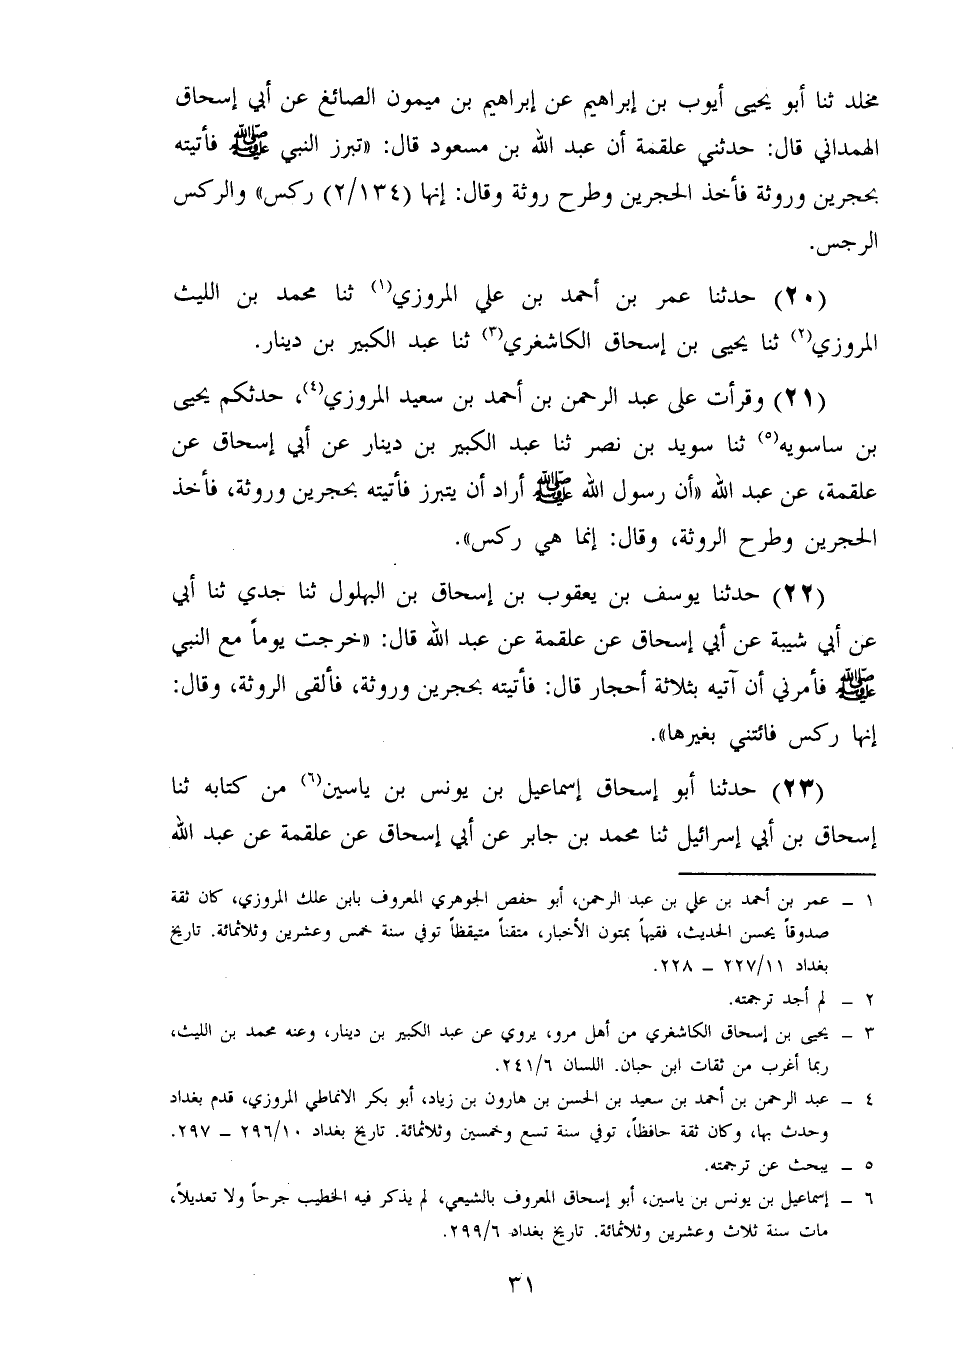 مخلد ثنا أبو يحيى أيوب بن إبراهيم عن إبراهيم بن ميمون الصائغ عن أبي إسحاق
الهمداني قال: حدثني علقمة أن عبد الله بن مسعود قال: «تبرز النبي ﷺ فأتيته
بحجرين وروثة فأخذ الحجرين وطرح روثة وقال: إنها (٢/١٣٤) ركس» والركس
الرجس.
(٢٠) حدثنا عمر بن أحمد بن علي المروزي(١) ثنا محمد بن الليث
المروزي(٢) ثنا يحيى بن إسحاق الكاشغري(٣) ثنا عبد الكبير بن دينار.
(٢١) وقرأت على عبد الرحمن بن أحمد بن سعيد المروزي(٤)، حدثكم يحيى
بن ساسويه(٥) ثنا سويد بن نصر ثنا عبد الكبير بن دينار عن أبي إسحاق عن
علقمة، عن عبد الله «أن رسول الله ﷺ أراد أن يتبرز فأتيته بحجرين وروثة، فأخذ
الحجرين وطرح الروثة، وقال: إنما هي ركس».
(٢٢) حدثنا يوسف بن يعقوب بن إسحاق بن البهلول ثنا جدي ثنا أبي
عن أبي شيبة عن أبي إسحاق عن علقمة عن عبد الله قال: «خرجت يوماً مع النبي
ﷺ فأمرني أن آتيه بثلاثة أحجار قال: فأتيته بحجرين وروثة، فألقى الروثة، وقال:
إنها ركس فائتني بغيرها».
(٢٣) حدثنا أبو إسحاق إسماعيل بن يونس بن ياسين(٦) من كتابه ثنا
إسحاق بن أبي إسرائيل ثنا محمد بن جابر عن أبي إسحاق عن علقمة عن عبد الله
١ ــ عمر بن أحمد بن علي بن عبد الرحمن، أبو حفص الجوهري المعروف بابن علك المروزي، كان ثقة
صدوقاً يحسن الحديث، فقيهاً بمتون الأخبار، متقناً متيقظاً توفي سنة خمس وعشرين وثلاثمائة. تاريخ
بغداد ٢٢٧/١١ ــ ٢٢٨.
٢ ــ لم أجد ترجمته.
٣ ــ يحيى بن إسحاق الكاشغري من أهل مرو، يروي عن عبد الكبير بن دينار، وعنه محمد بن الليث،
ربما أغرب من ثقات ابن حبان. اللسان ٢٤١/٦.
٤ ــ عبد الرحمن بن أحمد بن سعيد بن الحسن بن هارون بن زياد، أبو بكر الانماطي المروزي، قدم بغداد
وحدث بها، وكان ثقة حافظاً، توفي سنة تسع وخمسين وثلاثمائة. تاريخ بغداد ٢٩٦/١٠ ــ ٢٩٧.
٥ ــ يبحث عن ترجمته.
٦ ــ إسماعيل بن يونس بن ياسين، أبو إسحاق المعروف بالشيعي، لم يذكر فيه الخطيب جرحاً ولا تعديلاً،
مات سنة ثلاث وعشرين وثلاثمائة. تاريخ بغداد ٢٩٩/٦.
٣١